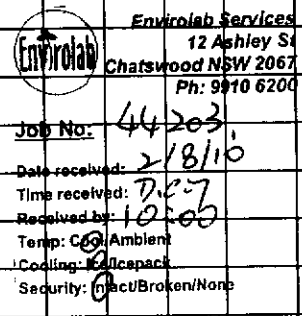 Envirolab Services
Envirolab
12 Ashley St
Chatswood NSW 2067
Ph: 9910 6200
Job No: 44203
Date received: 2/8/10
Time received:
Received by: 10:00
Temp: Cool/Ambient
Cooling: Ice/Icepack
Security: Intact/Broken/None